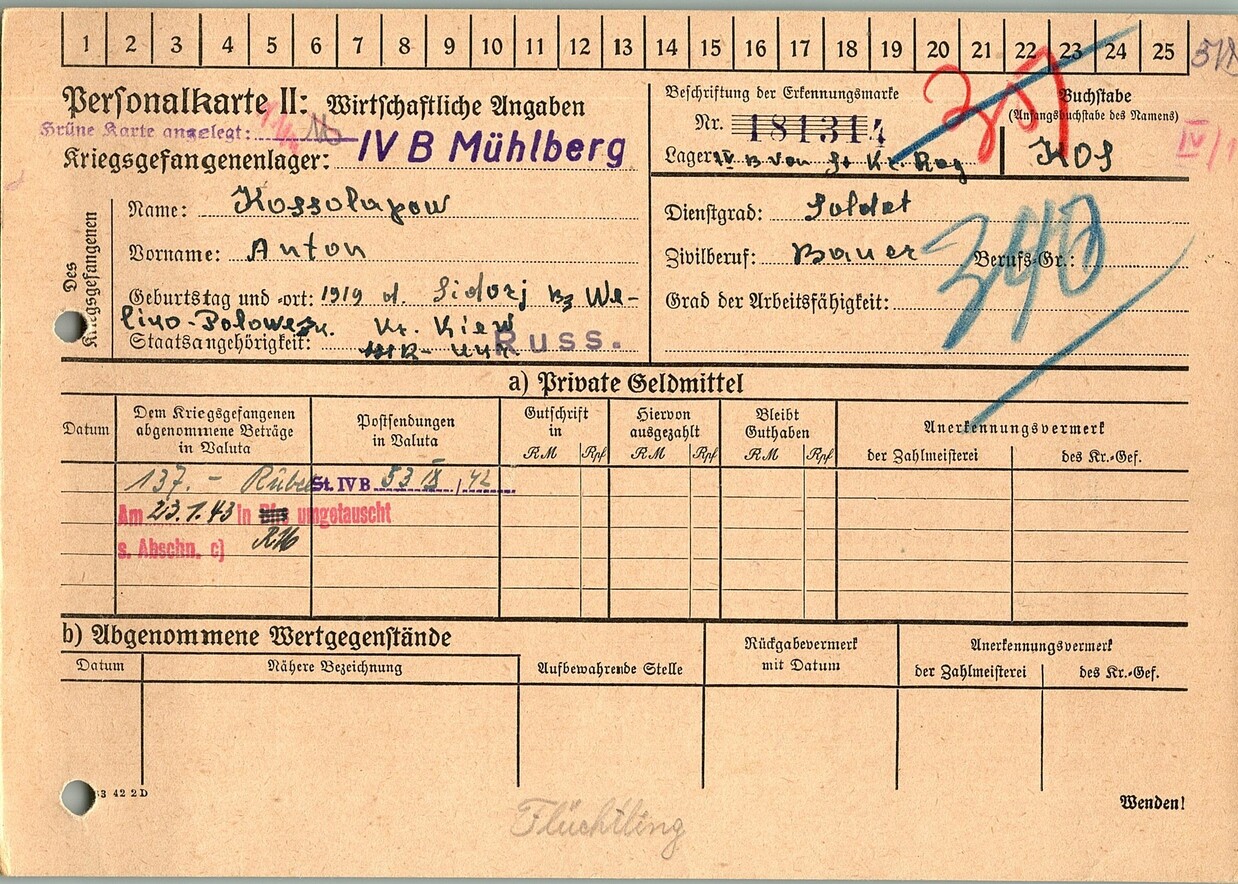 1 2 3 4 5 6 7 8 9 10 11 12 13 14 15 16 17 18 19 20 21 22 23 24 25
Personalkarte II: Wirtschaftliche Angaben
Grüne Karte angelegt:
Kriegsgefangenenlager: IV B Mühlberg
Beschriftung der Erkennungsmarke
Nr. 181314
Lager: IV B von
Buchstabe
(Anfangsbuchstabe des Namens)
KOS
IV/1
Des Kriegsgefangenen
Name: Kossolapow
Vorname: Anton
Geburtstag und -ort: 1919 d. Sidorj We-
lino-Polowezk. Kr. Kiew
Staatsangehörigkeit: Russ.
Dienstgrad: Soldat
Zivilberuf: Bauer Berufs-Gr.:
Grad der Arbeitsfähigkeit:
340
a) Private Geldmittel
Datum
Dem Kriegsgefangenen
abgenommene Beträge
in Valuta
Postsendungen
in Valuta
Gutschrift
in
RM Rpf
Hiervon
ausgezahlt
RM Rpf
Bleibt
Guthaben
RM Rpf
Anerkennungsvermerk
der Zahlmeisterei des Kr.-Gef.
137.- Rubel St. IV B 53 IX 42
Am 23.1.43 in umgetauscht
RM
s. Abschn. c)
b) Abgenommene Wertgegenstände
Datum Nähere Bezeichnung Aufbewahrende Stelle
Rückgabevermerk
mit Datum
Anerkennungsvermerk
der Zahlmeisterei des Kr.-Gef.
63 42 2 D
Wenden!
Flüchtling